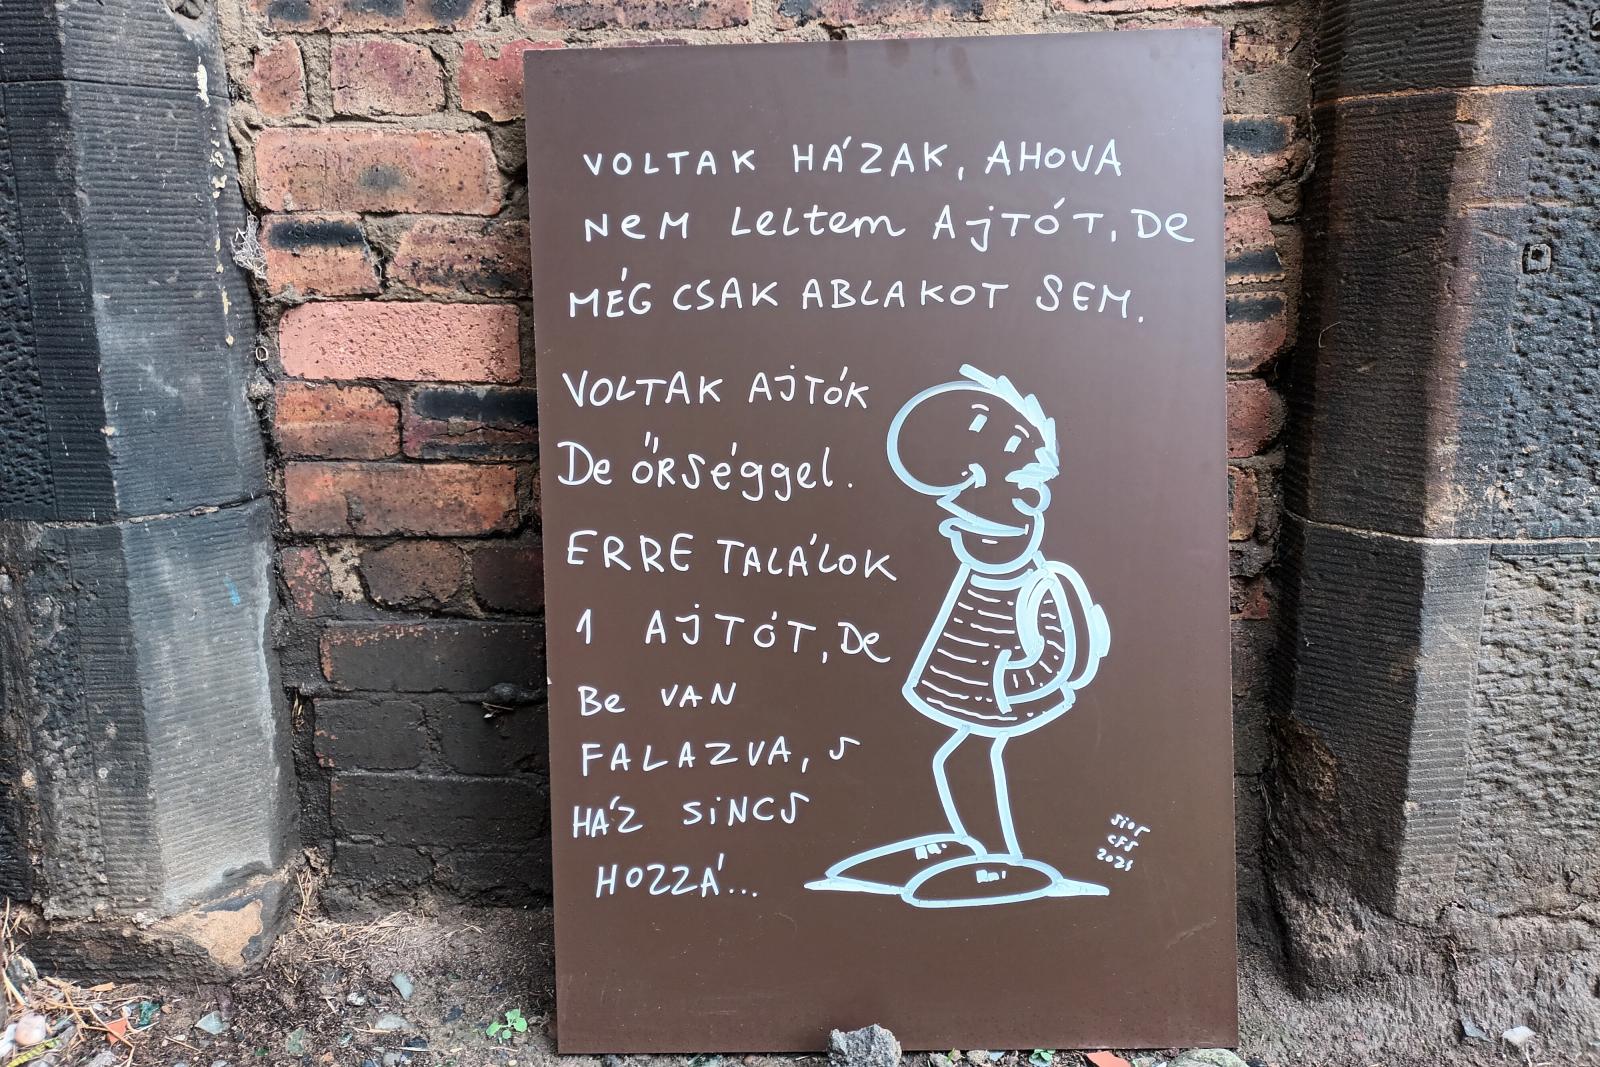 VOLTAK HÁZAK, AHOVA
NEM LELTEM AJTÓT, DE
MÉG CSAK ABLAKOT SEM.
VOLTAK AJTÓK
DE ŐRSÉGGEL.
ERRE TALÁLOK
1 AJTÓT, DE
BE VAN
FALAZVA, S
HÁZ SINCS
HOZZÁ...